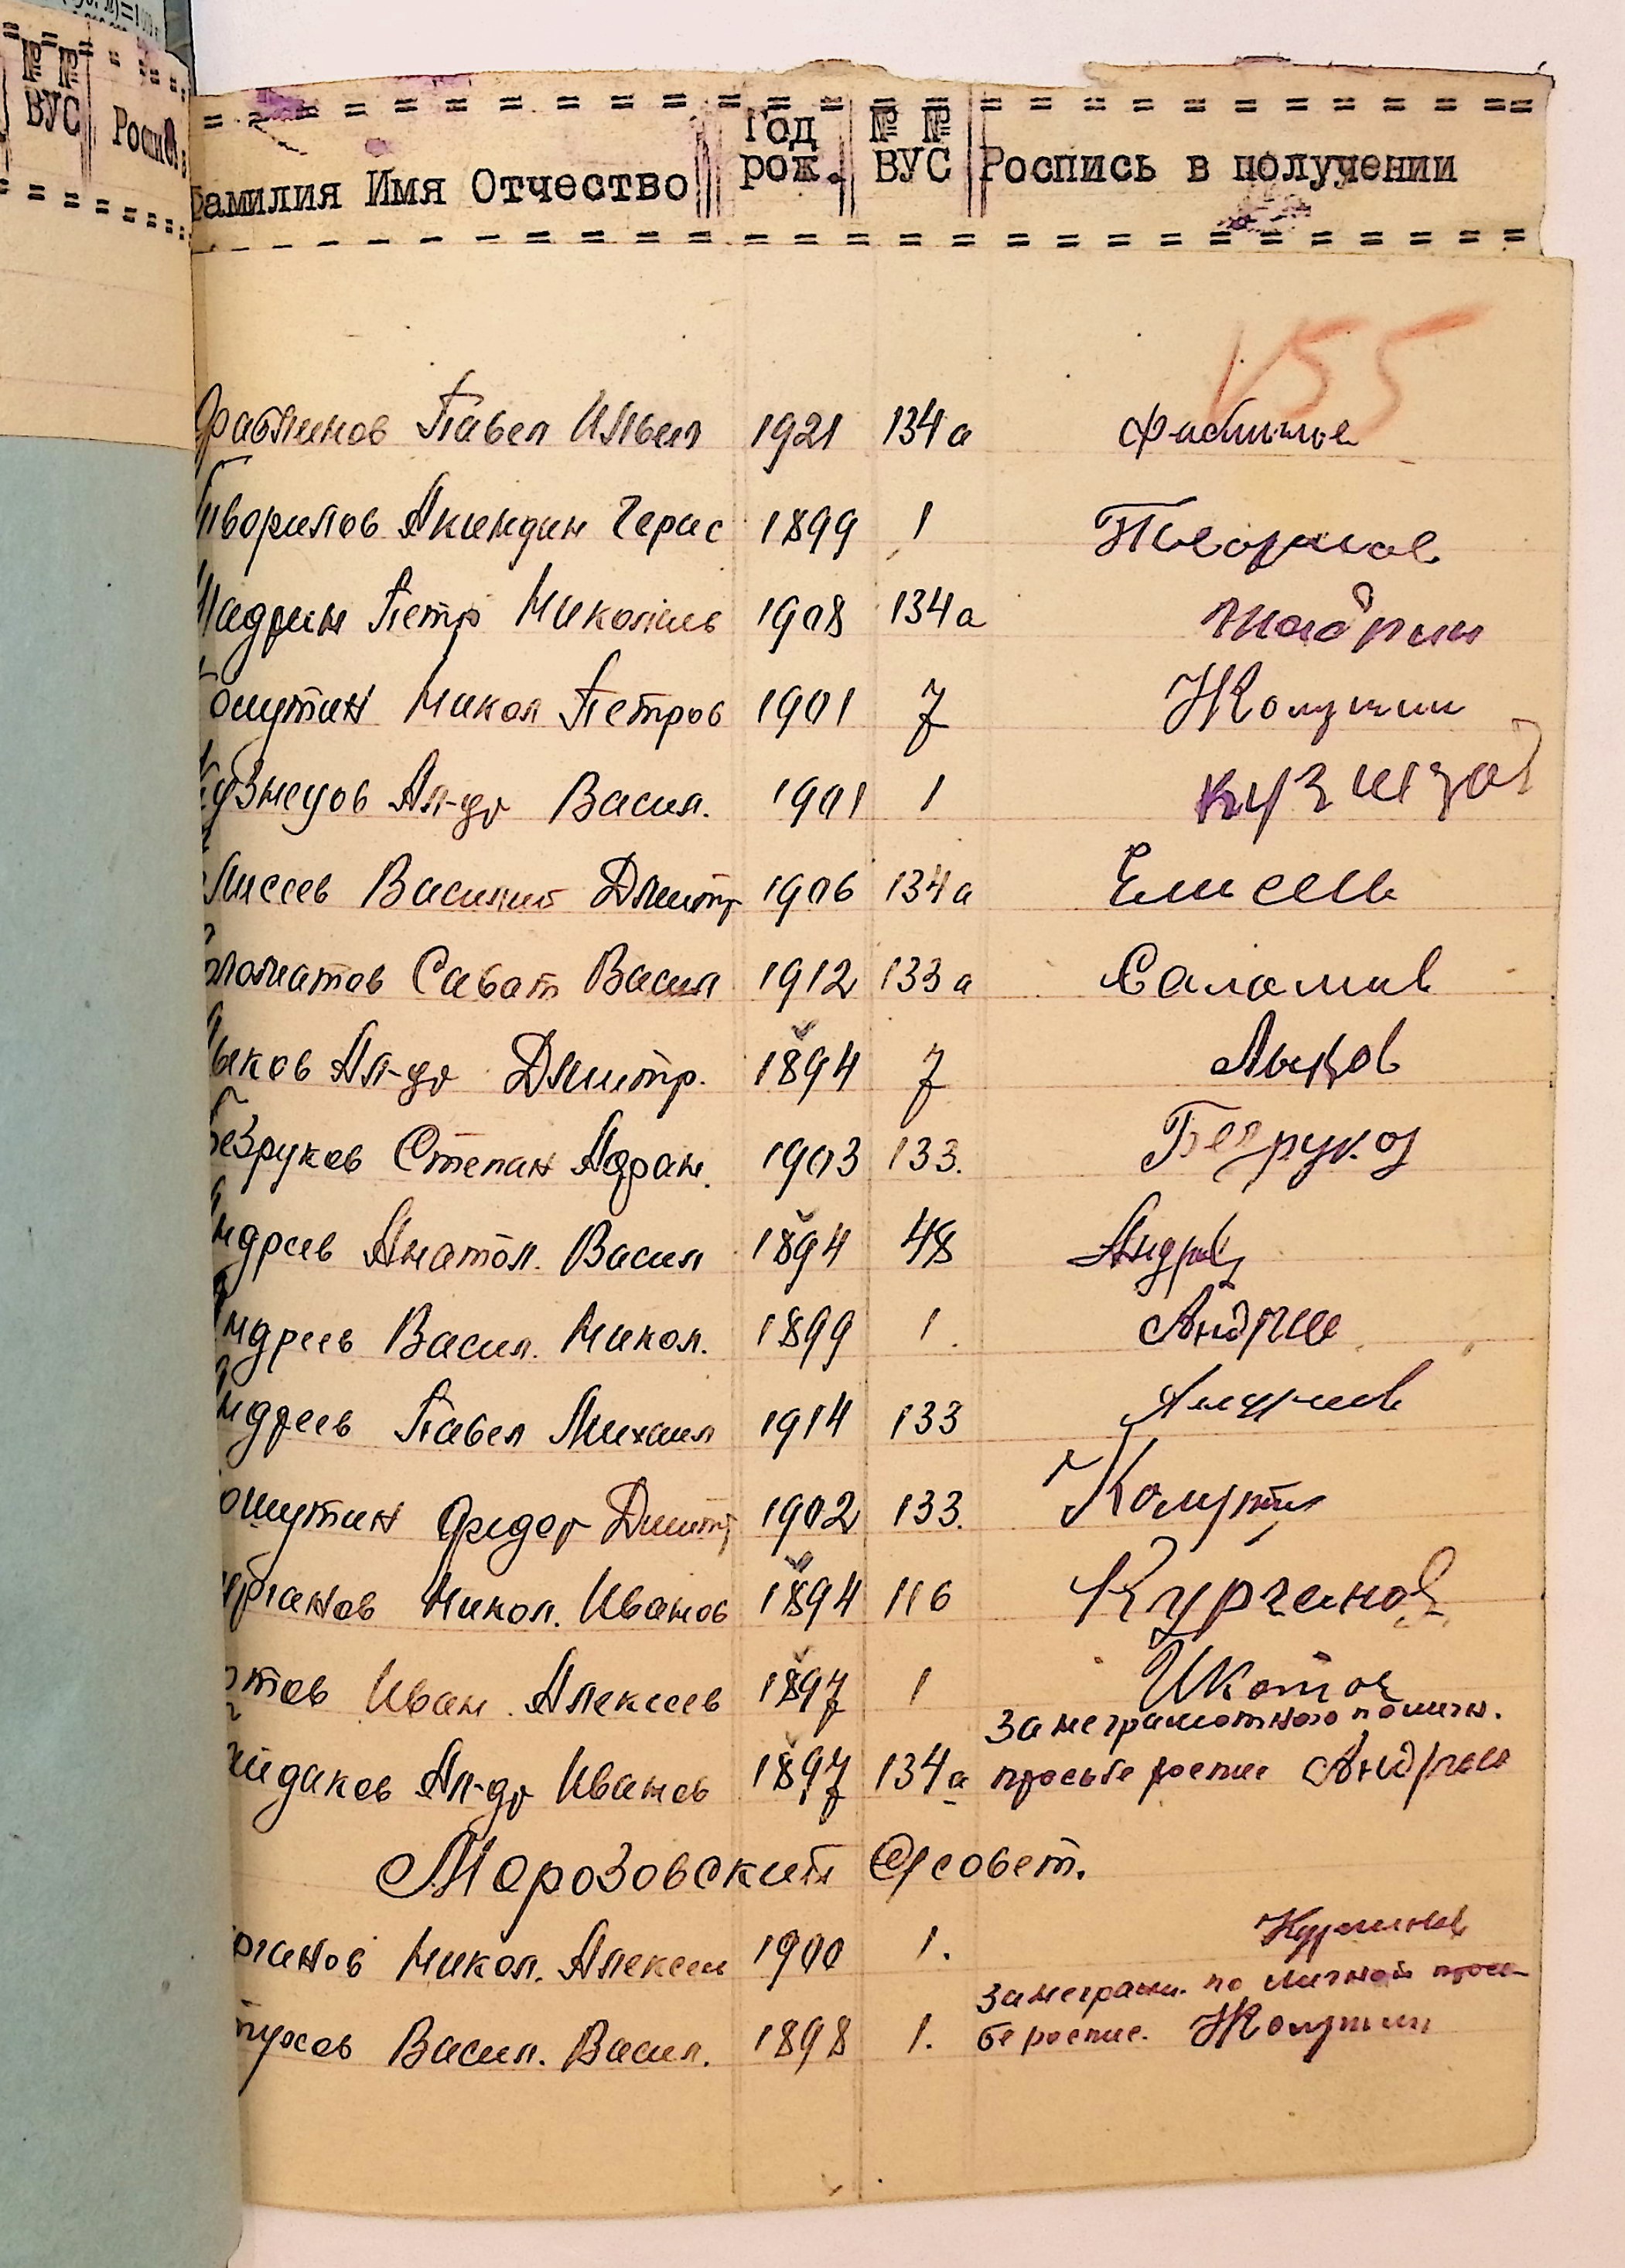 № № ВУС Роспис.
Фамилия Имя Отчество Год рож. № № ВУС Роспись в получении
155
Фаблинов Павел Ильич 1921 134а
Творилов Акиндин Герас 1899 1 Творилов
Шадрин Петр Николаев 1908 134а Шадрин
Кошутин Никол Петров 1901 7 НКошутин
Кузнецов Ал-др Васил. 1901 1
Елисеев Василий Дмитр 1906 134а Елисеев
оломатов Сават Васил 1912 133а
Лыков Ал-др Дмитр. 1894 7 Лыков
Безруков Степан Адриан. 1903 133. Безруков
Андреев Анатол. Васил 1894 48 Андреев
Андреев Васил. Никол. 1899 1. Андреев
Андреев Павел Михаил 1914 133 Андреев
ошутин Федор Дмитр 1902 133. Кошутин
урганов Никол. Иванов 1894 116 Курганов
отов Иван Алексеев 1897 1 ИКотов
За неграмотного по личн.
йдаков Ал-др Иванов 1897 134а просьбе роспис Андреев
Морозовский с/совет.
рганов Никол. Алексеев 1900 1. Курганов
За неграм. по личной прось-
тухов Васил. Васил. 1898 1. бе роспис. НКошутин